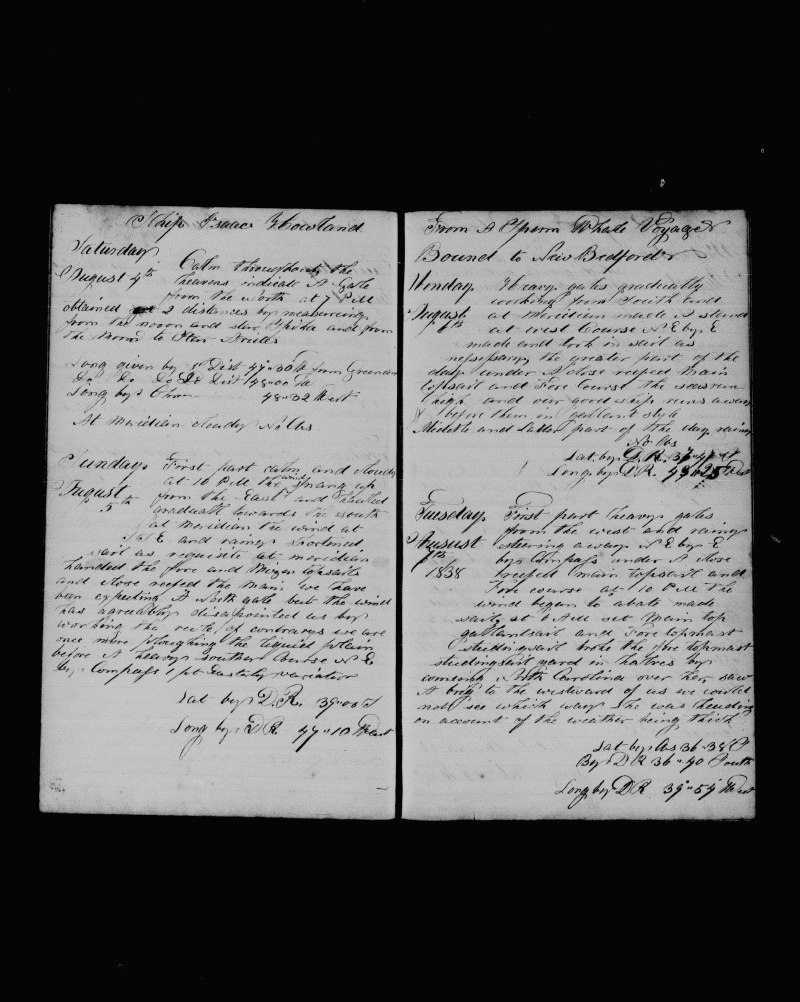 Ship Isaac Howland
Saturday
August 4th Calm throughout the
heavens indicate A Gale
from the North at 7 PM
obtained 2 distances by measureing
from the moon and star Spica and from
the Moon to Star
Long given by 1st Dist 47"30 W from Greenwich
Do Do Do 2d Dist 48"00 W
Long by Chron 48"32 West
At Meridian cloudy No Obs
Sunday First part calm and cloudy
August at 10 PM the wind sprang up
5th from the East and hauled
gradualy towards the South
at Meridian the wind at
S S E and rainy shortened
sail as requisite at meridian
handed the fore and Mizen topsails
and close reefed the Main we have
been expecting A North gale but the wind
has agreeably disapointed us by
working the rule of contrarys we are
once more ploughing the liquid plain
before A heavy southern Course N E
by Compass 1 pt Easterly variation
Lat by D.R. 39"00 S
Long by D R. 47"10 West
From A Sperm Whale Voyage
Bound to New Bedford
Monday Heavy gales gradually
working from South and
August at Meridian made A stand
6th at west Course N E by E
made and took in sail as
nessessary the greater part of the
day under A close reefed Main
topsail and Fore Course the sea run
high and our good ship runs away
before them in gallant style
Middle and Latter part of the day rainy
No Obs
Lat by D.R. 37"
Long by D R. West
Tuesday First part heavy gales
from the west and rainy
August steering away N E by E
7th by Compass under A close
1838 reefed main topsail and
Fore course at 10 PM the
wind began to abate made
sail at 6 AM set Main top
gallantsail and Fore topmast
studingsail broke the fore topmast
studingsail yard in halves by
comeing North Carolina over her saw
A brig to the westward of us we could
not see which way she was heading
on account of the weather being thick
Lat by Obs 36"38 S
By D R 36"40 South
Long by D R 39"54 West